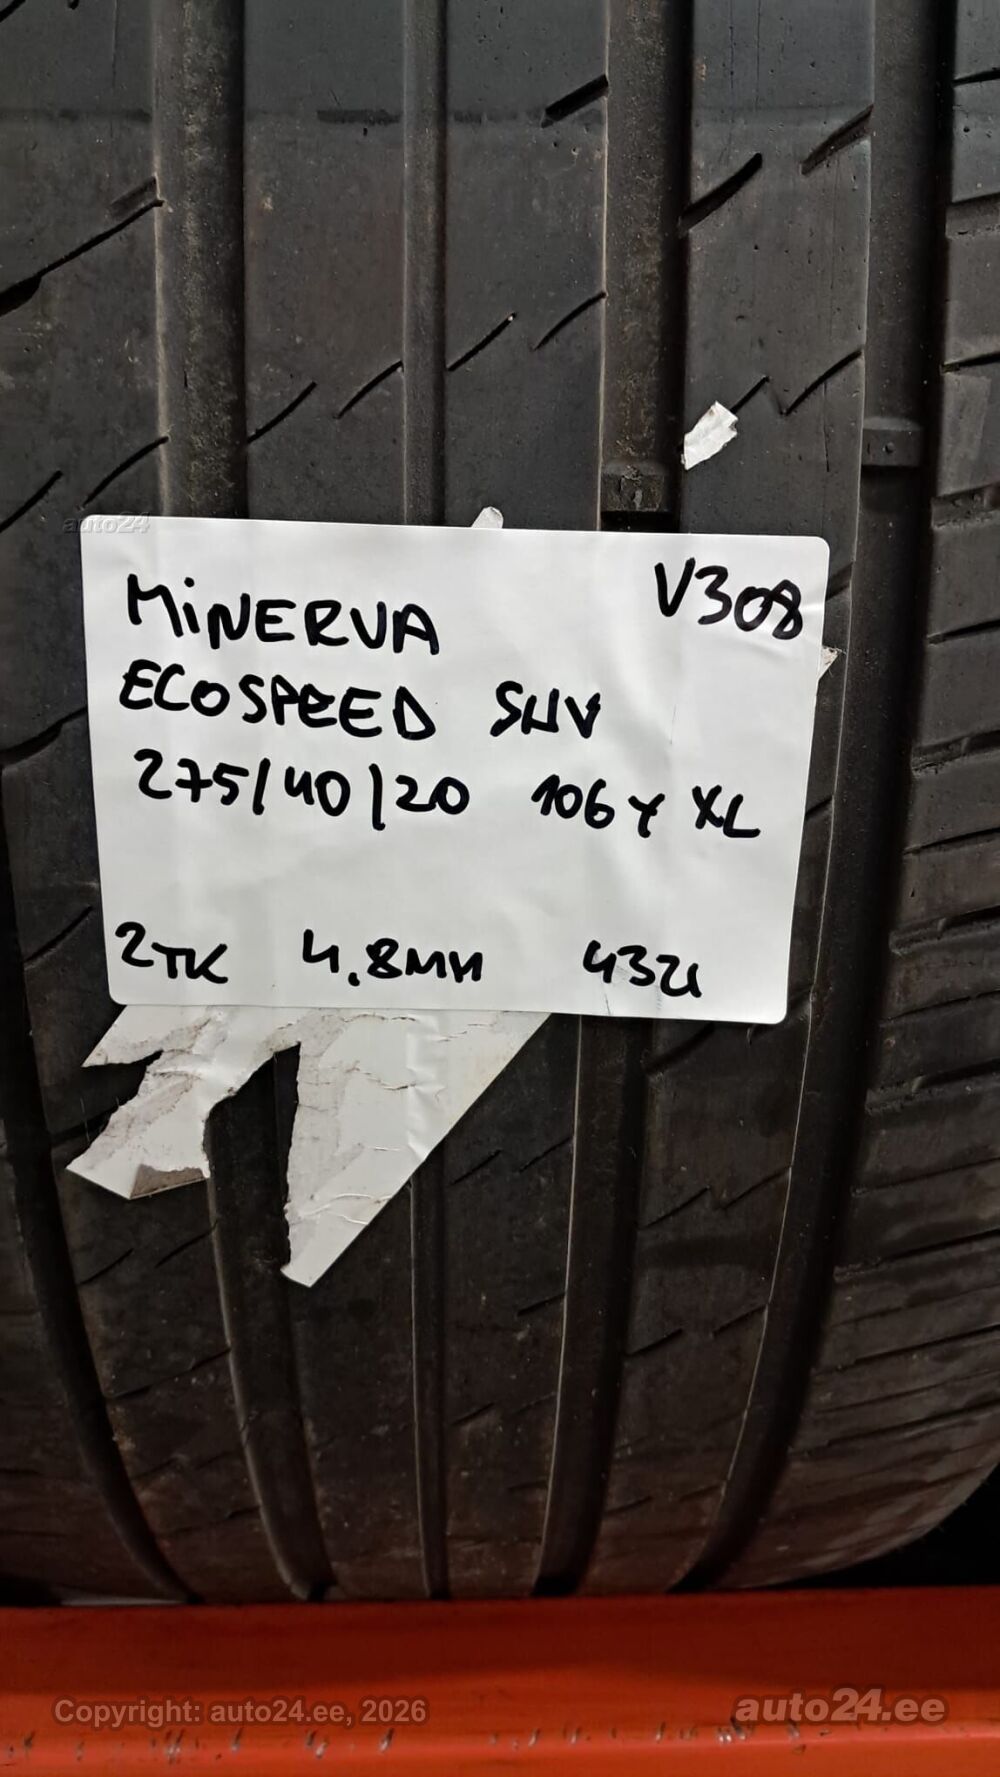 auto24
V308
MiNERVA
ECOSPEED SUV
275/40/20 106Y XL
2TK 4.8MM 4321
Copyright: auto24.ee, 2026
auto24.ee